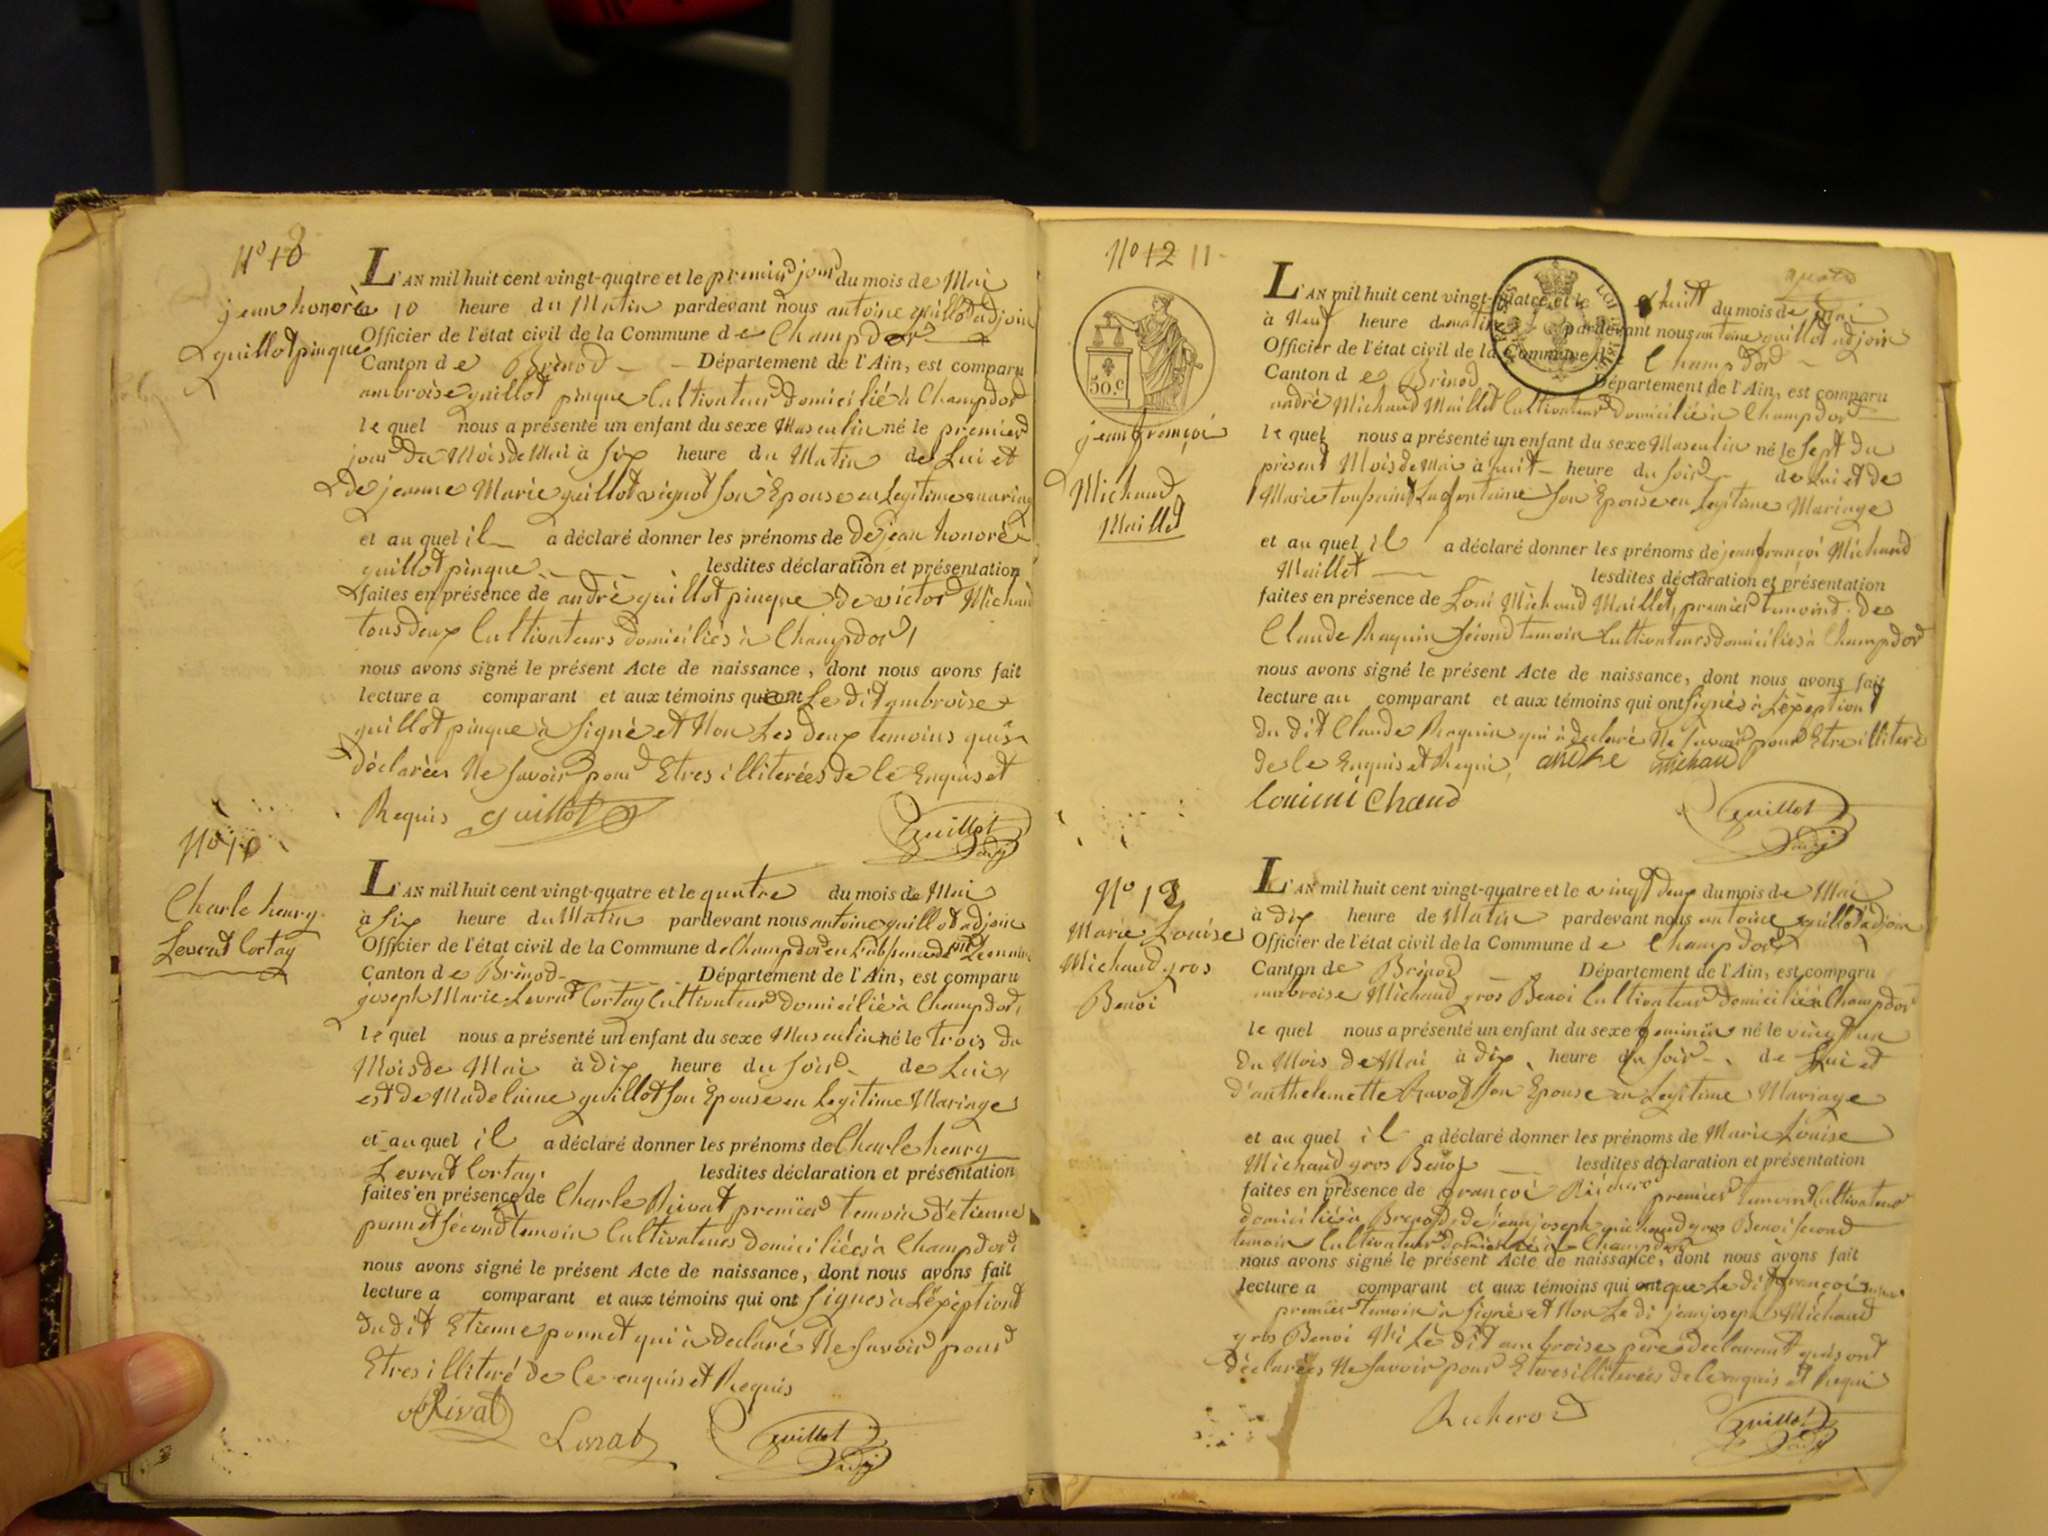 N° 10
jean honoré
guillot pinque
L'AN mil huit cent vingt-quatre et le premier jour du mois de Mai
a 10 heure du Matin pardevant nous antoine guillot adjoin
Officier de l'état civil de la Commune de Champdor
Canton de Brénod Département de l'Ain, est comparu
ambroise guillot pinque Cultivateur domicilié à Champdor
le quel nous a présenté un enfant du sexe Masculin né le premier
jour du Mois de Mai à Six heure du Matin de Lui et
de jeanne Marie guillot vignot son Epouse en Legitime mariag
et au quel il a déclaré donner les prénoms de de jean honoré
guillot pinque lesdites déclaration et présentation
faites en présence de andré guillot pinque de victor Michau
tous deux Cultivateurs domiciliés à Champdor
nous avons signé le présent Acte de naissance, dont nous avons fait
lecture a comparant et aux témoins qui ont Le dit ambroise
guillot pinque à Signé et Non Les deux temoins quis
déclarées Ne Savoir pour Etres illiterées de le Enquis et
Requis guillot
Guillot adj
N° 10
Charle henry
Levrat Cortay
L'AN mil huit cent vingt-quatre et le quatre du mois de Mai
à Six heure du Matin pardevant nous antoine guillot adjoin
Officier de l'état civil de la Commune de Champdor en L'absence de Mr Le maire
Canton de Brénod Département de l'Ain, est comparu
joseph Marie Levrat Cortay Cultivateur domicilié à Champdor,
le quel nous a présenté un enfant du sexe Masculin né le trois du
Mois de Mai à dix heure du Soir de Lui
est de Madelaine guillot son Epouse en Legitime Mariage
et au quel il a déclaré donner les prénoms de Charle henry
Levrat Cortay, lesdites déclaration et présentation
faites en présence de Charle Rivat premier temoin d'etienne
ponnet Sécond temoin Cultivateurs domiciliées à Champdor
nous avons signé le présent Acte de naissance, dont nous avons fait
lecture a comparant et aux témoins qui ont Signes à L'éxéption
du dit Etienne ponnet qui à declaré Ne Savoir pour
Etres illiteré de le enquis et Requis
Rivat
Levrat
Guillot adj
N° 12 11
50.c
jean françoi
Michaud
Maillet
L'AN mil huit cent vingt-quatre et le huit du mois de Mai
à Neuf heure du matin pardevant nous antoine guillot adjoin
Officier de l'état civil de la Commune de Champdor
Canton de Brénod Département de l'Ain, est comparu
andré Michaud Maillet Cultivateur domicilié à Champdor
le quel nous a présenté un enfant du sexe Masculin né le Sept du
présent Mois de Mai à huit heure du Soir de Lui et de
Marie toussaint Lafontaine Son Epouse en Legitime Mariage
et au quel il a déclaré donner les prénoms de jean françoi Michaud
Maillet lesdites déclaration et présentation
faites en présence de Loui Michaud Maillet premier temoind de
Claude Raquin Sécond temoin Cultivateurs domiciliés à Champdor
nous avons signé le présent Acte de naissance, dont nous avons fait
lecture au comparant et aux témoins qui ont Signés à L'éxeption
du dit Claude Raquin qui à declaré Ne Savoir pour Etre illiteré
de le Enquis et Requi, andre michaud
loui michaud
Guillot adj
N° 13
Marie Louise
Michaud gros
Benoi
L'AN mil huit cent vingt-quatre et le vingt deux du mois de Mai
à dix heure de Matin pardevant nous antoine guillot adjoin
Officier de l'état civil de la Commune de Champdor
Canton de Brénod Département de l'Ain, est comparu
ambroise Michaud gros Benoi Cultivateur domicilié à Champdor
le quel nous a présenté un enfant du sexe feminin né le vingt un
du Mois de Mai à dix heure du Soir de Lui et
d'anthelemette Ravot Son Epouse en Legitime Mariage
et au quel il a déclaré donner les prénoms de Marie Louise
Michaud gros Benoi lesdites déclaration et présentation
faites en présence de françoi Richerod premier temoind Cultivateur
domicilié à Brénod, de jean joseph michaud gros Benoi Second
temoin Cultivateur domicilié à Champdor
nous avons signé le présent Acte de naissance, dont nous avons fait
lecture a comparant et aux témoins qui ont que Le dit françoi
premier temoin à Signé et Non Le di jean joseph Michaud
gros Benoi Ni Le dit ambroise père déclarant quis ont
déclarées Ne Savoir pour Etres illiterées de le enquis et Requi
Richerod
Guillot adj